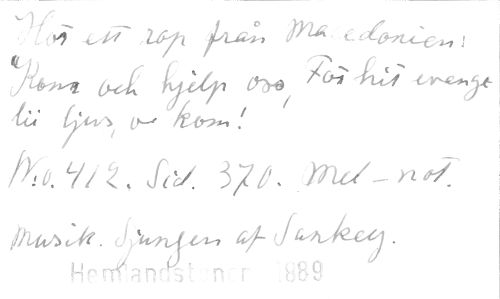 Hör ett rop från Macedonien:
"Kom och hjelp oss, För hit evange
lii ljus, o kom!
N:o. 412. Sid. 370. Mel-not.
Musik. Sjungen af Sankey.
Hemlandstoner 1889